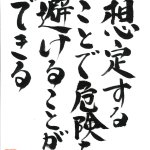 想定する
ことで危険を
避けることが
できる